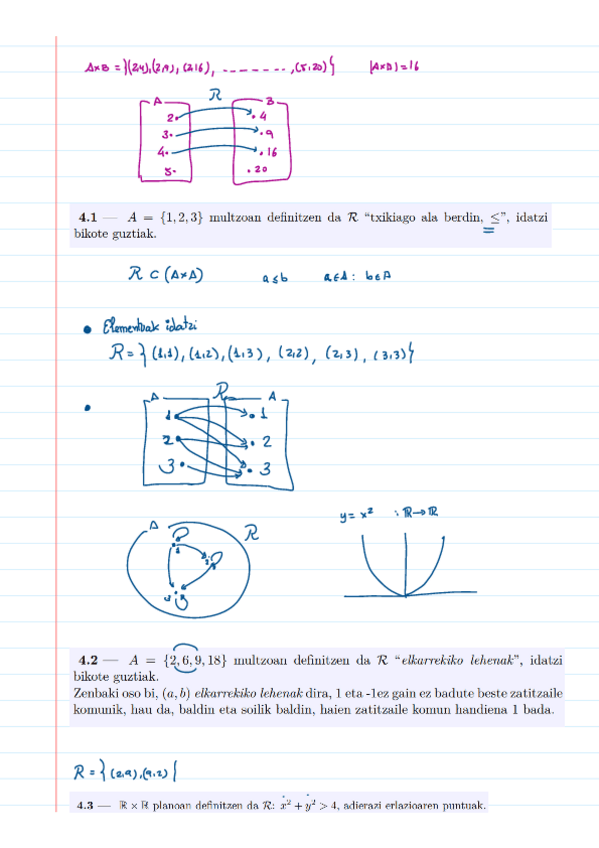 A×B = {(2,4),(2,9),(2,16), -------- ,(5,20)}   |A×B|=16
R
A   B
2.   . 4
3.   . 9
4.   . 16
5.   . 20
4.1 — A = {1, 2, 3} multzoan definitzen da R “txikiago ala berdin, ≤”, idatzi
bikote guztiak.
R ⊂ (A×A)   a≤b   a∈A : b∈A
• Elementuak idatzi
R = {(1,1), (1,2), (1,3), (2,2), (2,3), (3,3)}
•
R
A   A
1   . 1
2   . 2
3   . 3
y = x²   : ℝ→ℝ
A   R
1
2
3
4.2 — A = {2, 6, 9, 18} multzoan definitzen da R “elkarrekiko lehenak”, idatzi
bikote guztiak.
Zenbaki oso bi, (a, b) elkarrekiko lehenak dira, 1 eta -1ez gain ez badute beste zatitzaile
komunik, hau da, baldin eta soilik baldin, haien zatitzaile komun handiena 1 bada.
R = {(2,9),(9,2)}
4.3 — ℝ × ℝ planoan definitzen da R: x² + y² > 4, adierazi erlazioaren puntuak.